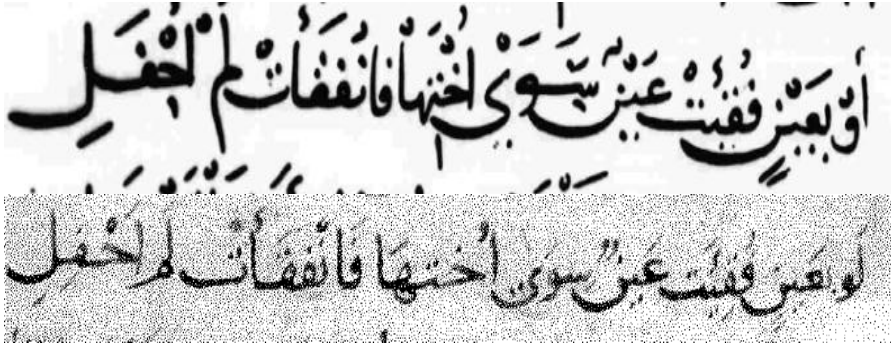 أَوْ بِعَيْنٍ فُقِئَتْ عَيْنٌ سِوَىْ أُخْتِهَا فَانْفَقَأَتْ لَمْ اَحْفَلِ
لَو بعَينٍ فُقِئَت عَينٌ سِوَى اُختهَا فَانْفَقَأَت لَم اَحْفِلِ